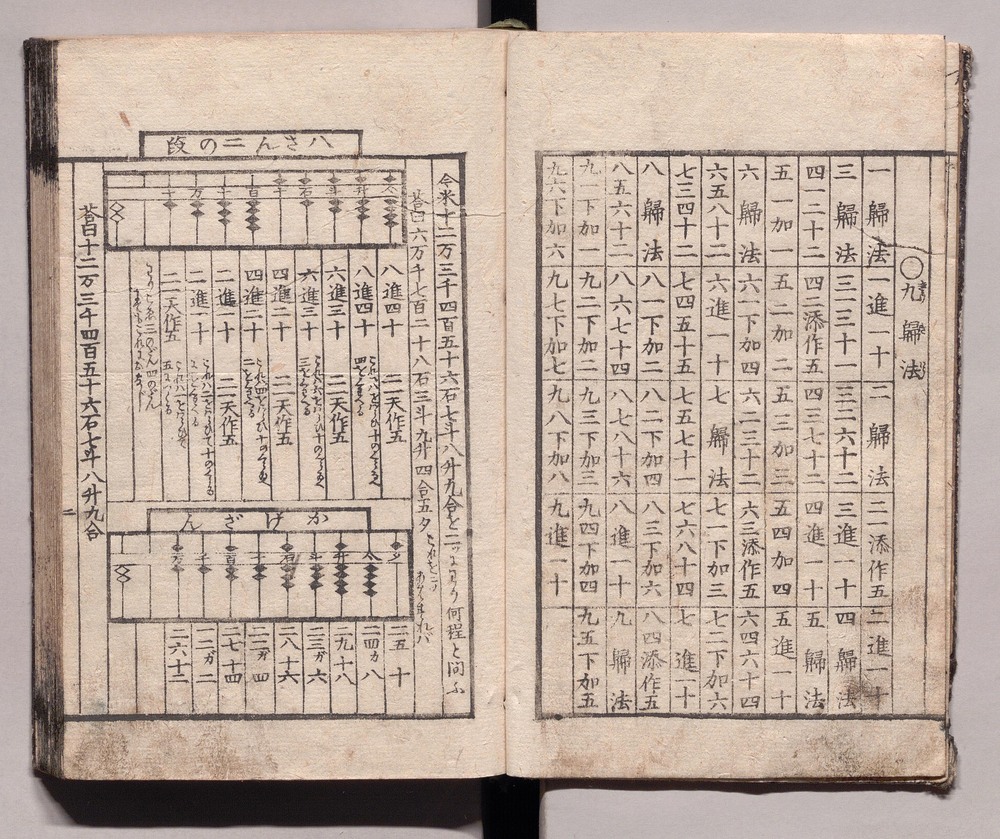 ○九歸法
一歸法 一進一十 二歸法 二一添作五 二進一十
三歸法 三一三十一 三二六十二 三進一十 四歸法
四一二十二 四二添作五 四三七十二 四進一十 五歸法
五一加一 五二加二 五三加三 五四加四 五進一十
六歸法 六一下加四 六二三十二 六三添作五 六四六十四
六五八十二 六進一十 七歸法 七一下加三 七二下加六
七三四十二 七四五十五 七五七十一 七六八十四 七進一十
八歸法 八一下加二 八二下加四 八三下加六 八四添作五
八五六十二 八六七十四 八七八十六 八進一十 九歸法
九一下加一 九二下加二 九三下加三 九四下加四 九五下加五
九六下加六 九七下加七 九八下加八 九進一十
今米十二万三千四百五十六石七斗八升九合を二ッにわり何程と問ふ
答曰六万千七百二十八石三斗九升四合五夕
八さん二の段
合 升 斗 石 十 百 千 万 十
八進四十 二一天作五
八進四十
六進三十 二一天作五
六進三十
四進二十 二一天作五
四進二十
二進一十 二一天作五
二進一十
二一天作五
かけざん
夕 合 升 斗 石 十 百 千 万
二五十
二四カ八
二九十八
二三カ六
二八十六
二二カ四
二七十四
二一カ二
二六十二
答曰十二万三千四百五十六石七斗八升九合
二